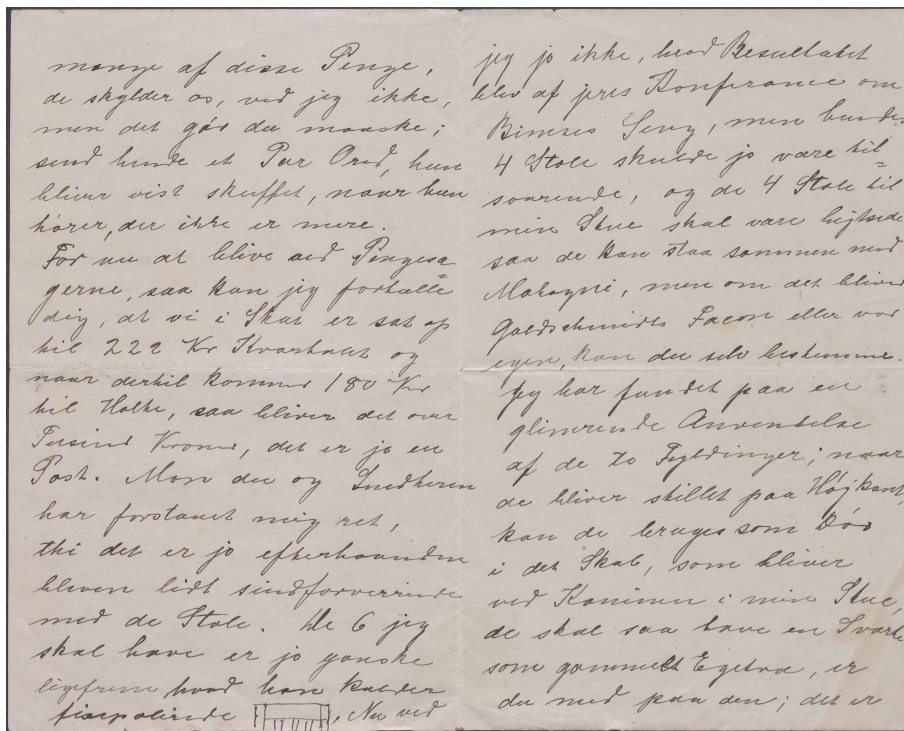 mange af disse Penge,
de skylder os, ved jeg ikke,
men det gør du maaske;
send hende et Par Ord, hun
bliver vist skuffet, naar hun
hører, der ikke er mere.
For nu at blive ved Pengesa=
gerne, saa kan jeg fortælle
dig, at vi i Skat er sat op
til 222 Kr Kvartalet og
naar dertil kommer 180 Kr
til Holte, saa bliver det over
Tusind Kroner, det er jo en
Post. Mon du og Snedkeren
har forstaaet mig ret,
thi det er jo efterhaanden
bleven lidt sindforvirrende
med de Stole. De 6 jeg
skal have er jo ganske
ligefrem hvad han kalder
Nu ved
jeg jo ikke, hvad Resultatet
blev af jeres Konferance om
Seng, men hendes
4 Stole skulde jo være til=
svarende, og de 4 Stole til
min Stue skal være
saa de kan staa sammen med
Mahogni, men om det bliver
Goldschmidts Facon eller vor
egen, kan du selv bestemme.
Jeg har fundet paa en
glimrende Anvendelse
af de to Fyldinger; naar
de bliver skillet paa Højkant,
kan de bruges som Dør
i det Skab, som bliver
ved Kaminen i min Stue,
de skal saa have en Sværte
som gammelt Egetræ, er
du med paa den; det er